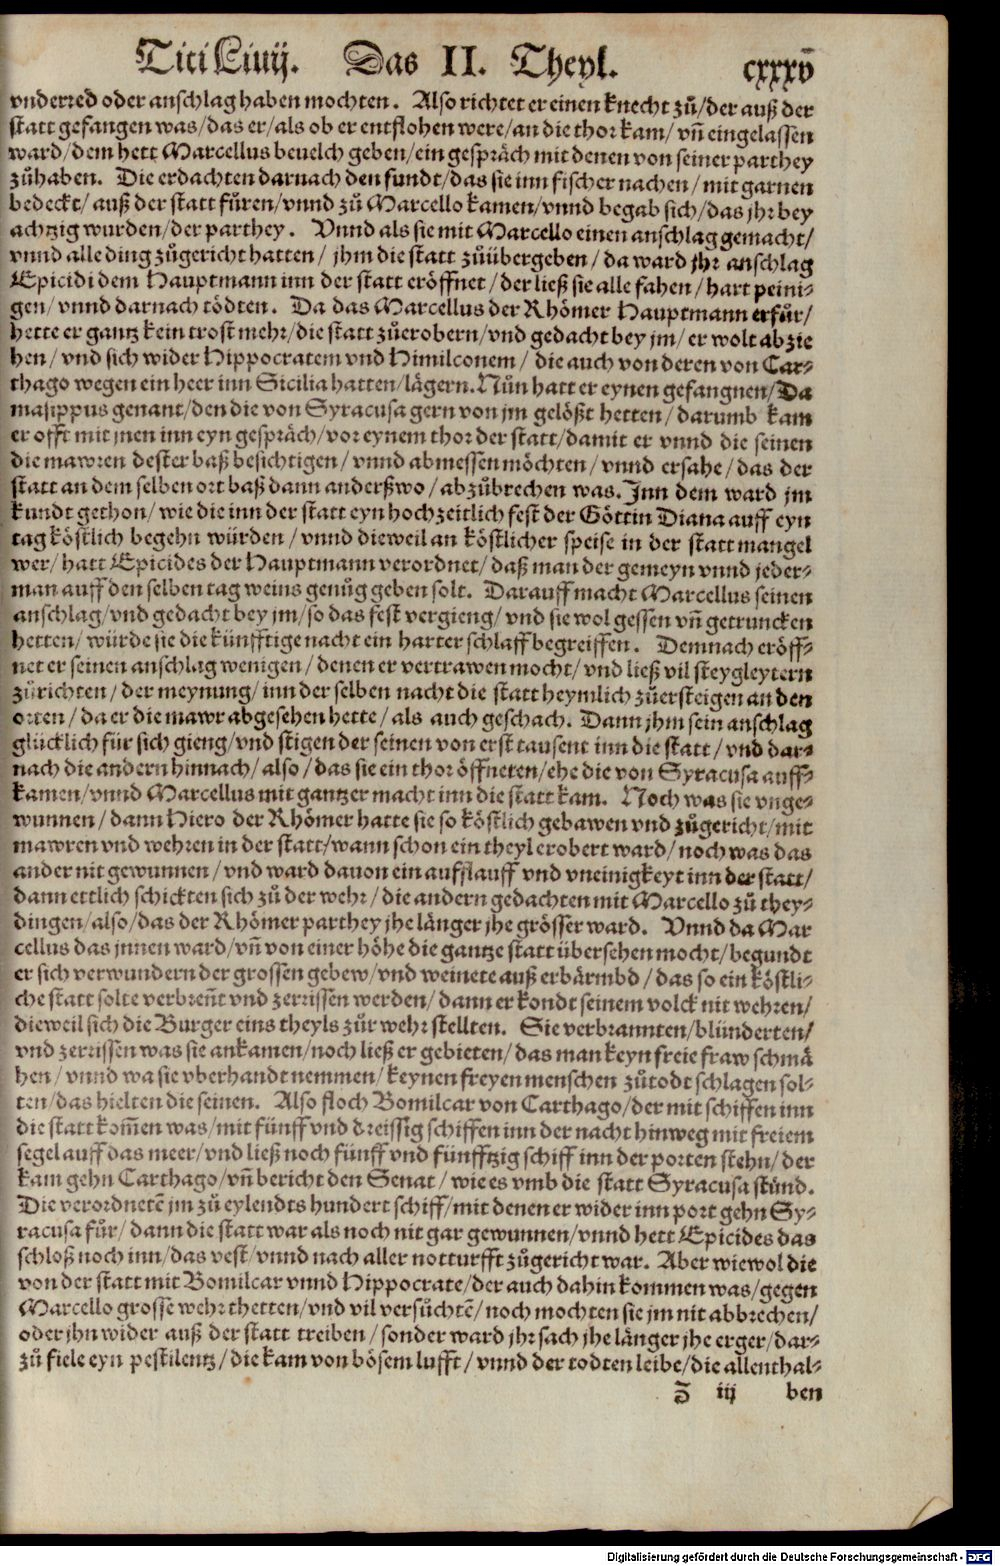 Titi Liuij. Das II. Theyl. cxxxv
vnderred oder anschlag haben mochten. Also richtet er einen knecht zů/der auß der
statt gefangen was/das er/als ob er entflohen were/an die thor kam/vnd̃ eingelassen
ward/dem hett Marcellus beuelch geben/ein gespräch mit denen von seiner parthey
zůhaben. Die erdachten darnach den fundt/das sie inn fischer nachen/mit garnen
bedeckt/auß der statt fůren/vnnd zů Marcello kamen/vnnd begab sich/das jhr bey
achtzig wurden/der parthey. Vnnd als sie mit Marcello einen anschlag gemacht/
vnnd alle ding zůgericht hatten/jhm die statt zůübergeben/da ward jhr anschlag
Epicidi dem Hauptmann inn der statt eröffnet/der ließ sie alle fahen/hart peini-
gen/vnnd darnach tödten. Da das Marcellus der Rhömer Hauptmann erfůr/
hette er gantz kein trost mehr/die statt zůerobern/vnd gedacht bey jm/er wolt abzie
hen/vnd sich wider Hippocratem vnd Himilconem/die auch von deren von Car-
thago wegen ein heer inn Sicilia hatten/lägern. Nůn hatt er eynen gefangnen/Da
masippus genant/den die von Syracusa gern von jm gelößt hetten/darumb kam
er offt mit jnen inn eyn gespräch/vor eynem thor der statt/damit er vnnd die seinen
die mawren dester baß besichtigen/vnnd abmessen möchten/vnnd ersahe/das der
statt an dem selben ort baß dann anderßwo/abzůbrechen was. Inn dem ward jm
kundt gethon/wie die inn der statt eyn hochzeitlich fest der Göttin Diana auff eyn
tag köstlich begehn würden/vnnd dieweil an köstlicher speise in der statt mangel
wer/hatt Epicides der Hauptmann verordnet/daß man der gemeyn vnnd jeder-
man auff den selben tag weins genůg geben solt. Darauff macht Marcellus seinen
anschlag/vnd gedacht bey jm/so das fest vergieng/vnd sie wol gessen vñ getruncken
hetten/würde sie die künfftige nacht ein harter schlaff begreiffen. Demnach eröff-
net er seinen anschlag wenigen/denen er vertrawen mocht/vnd ließ vil steygleytern
zůrichten/der meynung/inn der selben nacht die statt heymlich zůersteigen an den
orten/da er die mawr abgesehen hette/als auch geschach. Dann jhm sein anschlag
glücklich für sich gieng/vnd stigen der seinen von erst tausent inn die statt/vnd dar-
nach die andern hinnach/also/das sie ein thor öffneten/ehe die von Syracusa auff-
kamen/vnnd Marcellus mit gantzer macht inn die statt kam. Noch was sie vnge-
wunnen/dann Hiero der Rhömer hatte sie so köstlich gebawen vnd zůgericht/mit
mawren vnd wehren in der statt/wann schon ein theyl erobert ward/noch was das
ander nit gewunnen/vnd ward dauon ein aufflauff vnd vneinigkeyt inn der statt/
dann ettlich schickten sich zů der wehr/die andern gedachten mit Marcello zů they-
dingen/also/das der Rhömer parthey jhe länger jhe grösser ward. Vnnd da Mar
cellus das jnnen ward/vñ von einer höhe die gantze statt übersehen mocht/begundt
er sich verwundern der grossen gebew/vnd weinete auß erbärmbd/das so ein köstli-
che statt solte verbreñt vnd zerrissen werden/dann er kondt seinem volck nit wehren/
dieweil sich die Burger eins theyls zůr wehr stellten. Sie verbrannten/blünderten/
vnd zerrissen was sie ankamen/noch ließ er gebieten/das man keyn freie fraw schmä
hen/vnnd wa sie vberhandt nemmen/keynen freyen menschen zůtodt schlagen sol-
ten/das hielten die seinen. Also floch Bomilcar von Carthago/der mit schiffen inn
die statt kom̃en was/mit fünff vnd dreissig schiffen inn der nacht hinweg mit freiem
segel auff das meer/vnd ließ noch fünff vnd fünfftzig schiff inn der porten stehn/der
kam gehn Carthago/vñ bericht den Senat/wie es vmb die statt Syracusa stůnd.
Die verordnetẽ jm zů eylendts hundert schiff/mit denen er wider inn port gehn Sy-
racusa fůr/dann die statt war als noch nit gar gewunnen/vnnd hett Epicides das
schloß noch inn/das vest/vnnd nach aller notturfft zůgericht war. Aber wiewol die
von der statt mit Bomilcar vnnd Hippocrate/der auch dahin kommen was/gegen
Marcello grosse wehr thetten/vnd vil versůchtẽ/noch mochten sie jm nit abbrechen/
oder jhn wider auß der statt treiben/sonder ward jhr sach jhe länger jhe erger/dar-
zů fiele eyn pestilentz/die kam von bösem lufft/vnnd der todten leibe/die allenthal-
z iij ben
Digitalisierung gefördert durch die Deutsche Forschungsgemeinschaft - DFG